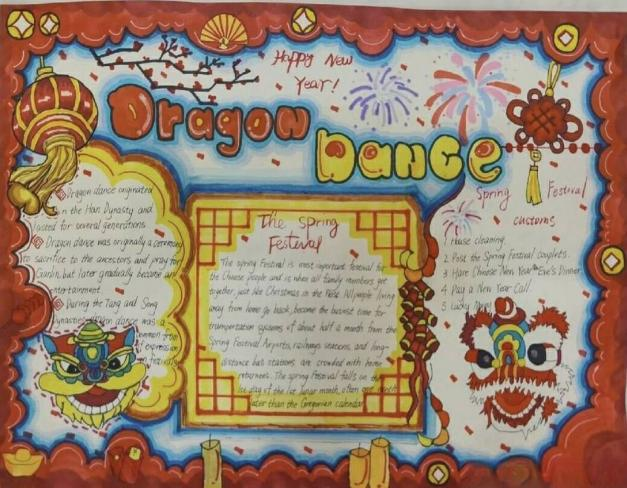 Happy New
Year!
Dragon
Dance
Dragon dance originated
in the Han Dynasty and
lasted for several generations
Dragon dance was originally a ceremony
to sacrifice to the ancestors and pray for
but later gradually became an
entertainment.
During the Tang and Song
Dynasties, dragon dance was a
common
expression
The Spring
Festival
The spring Festival is most important festival for
the Chinese people and is when all family members get
together, just like Christmas in the West. All people living
away from home go back, become the busiest time for
transportation systems of about half a month from the
Spring Festival Airports, railways stations, and long-
distance bus stations are crowded with home
returnees. The spring Festival falls on the
1st day of the 1st lunar month, often one month
later than the Gregorian calendar
Spring Festival
customs
1 House cleaning.
2. Post the Spring Festival couplets.
3. Have Chinese New Year's Eve's Dinner.
4. Pay a New Year Call.
5. Lucky Money